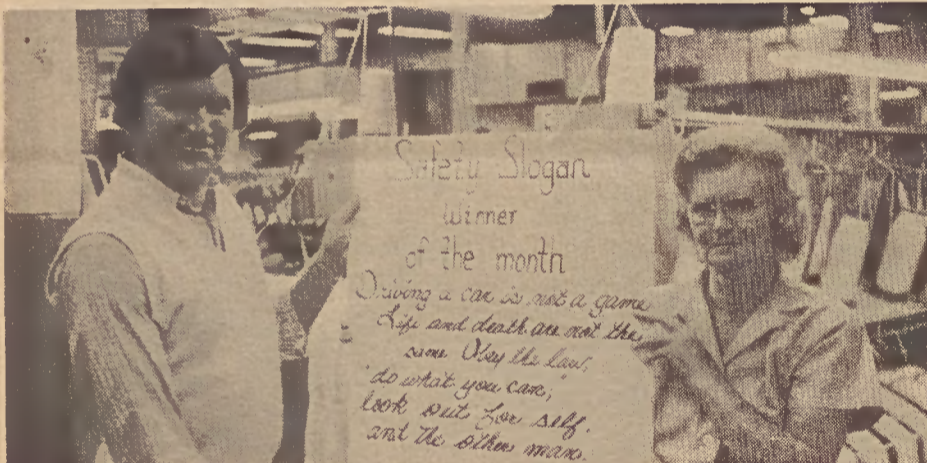 Safety Slogan
Winner
of the month
Driving a car is not a game
Life and death are not the
same Obey the law,
"do what you can,"
look out for self.
and the other man.